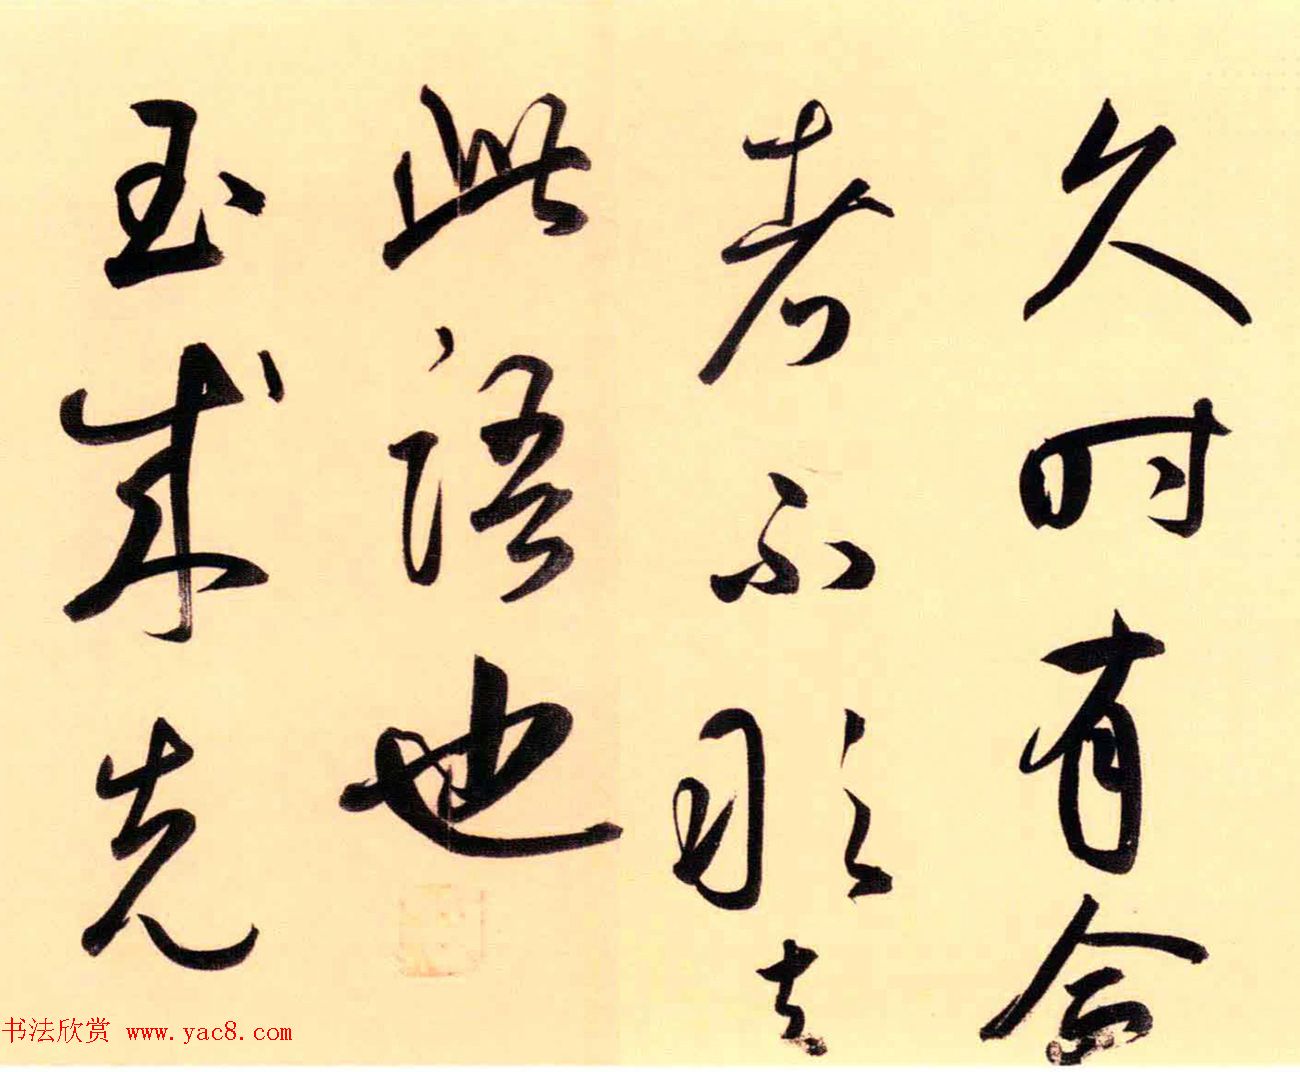 久时有会
者不能
此语也
玉成先
书法欣赏 www.yac8.com